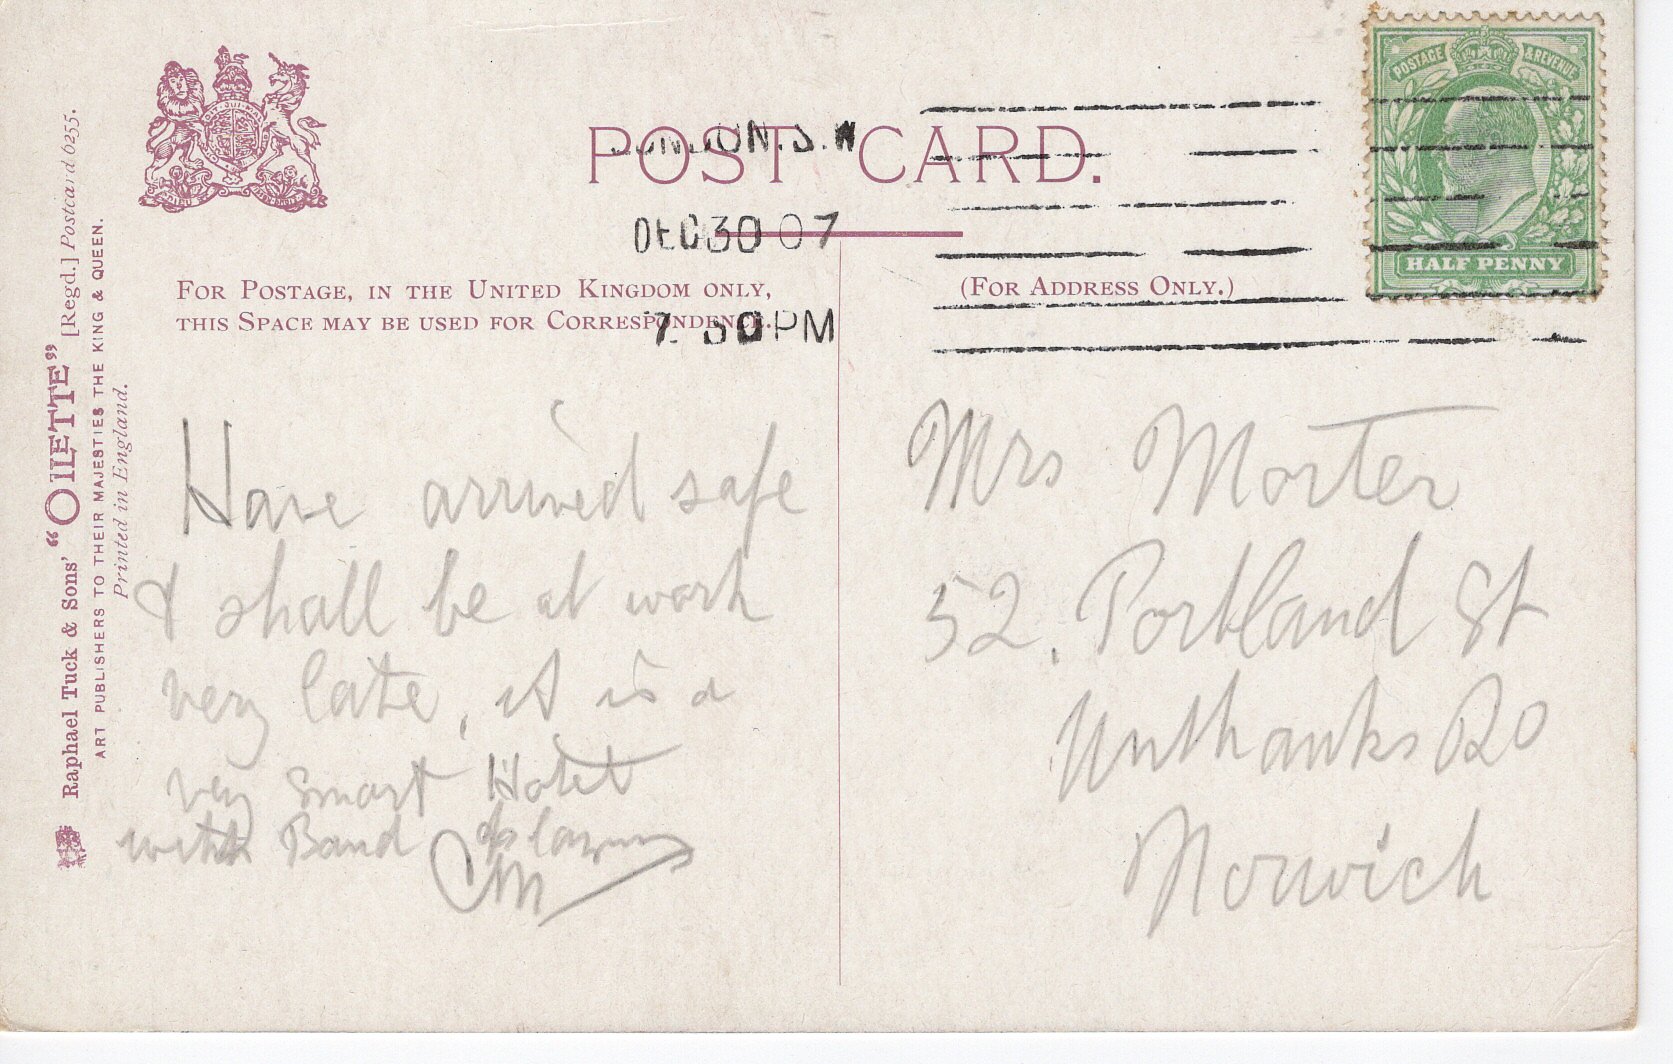 POST CARD.
LONDON. S.W
DEC 30 07
7. 30 PM
POSTAGE & REVENUE
HALF PENNY
FOR POSTAGE, IN THE UNITED KINGDOM ONLY,
THIS SPACE MAY BE USED FOR CORRESPONDENCE.
(FOR ADDRESS ONLY.)
Raphael Tuck & Sons' "OILETTE" [Regd.] Postcard 6255.
ART PUBLISHERS TO THEIR MAJESTIES THE KING & QUEEN.
Printed in England.
Have arrived safe
& shall be at work
very late, it is a
very smart Hotel
with Band
CM
Mrs Morter
52, Portland St
Unthanks Rd
Norwich